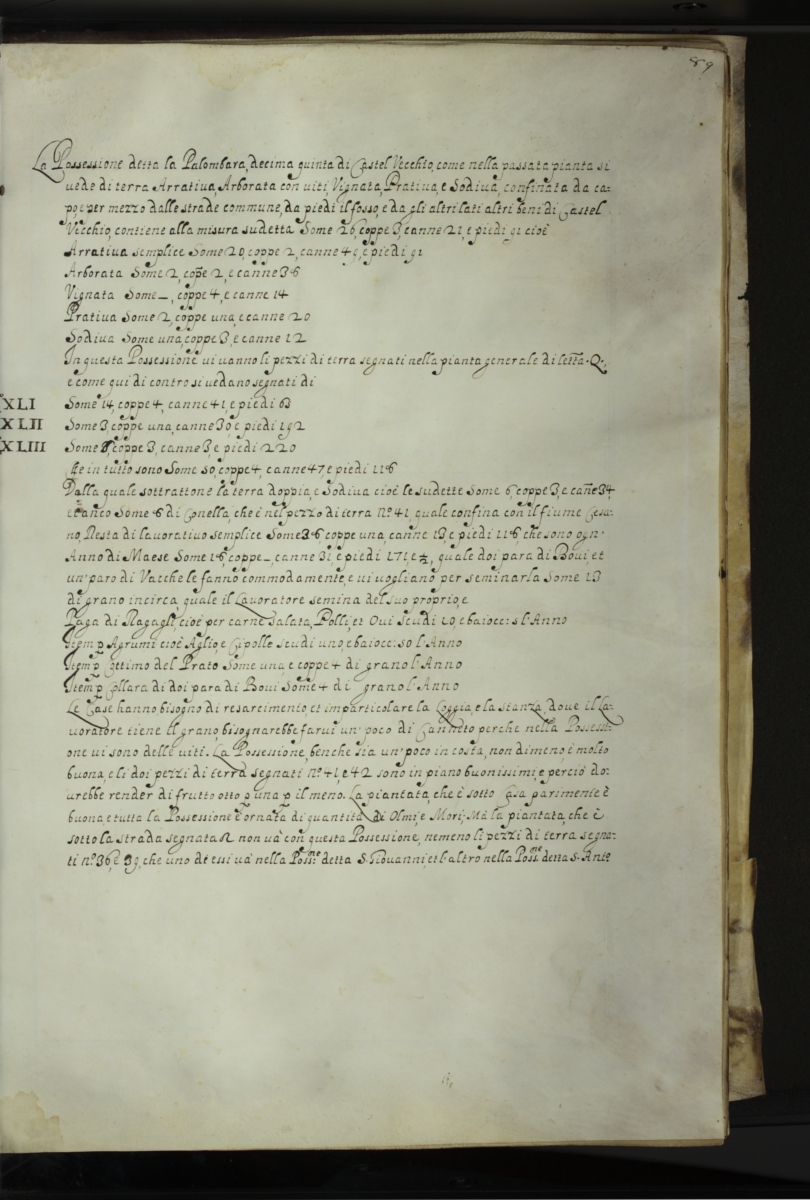 89
La Possessione detta la Palombara, decima quinta di Castel Vecchio, come nella passata pianta si
uede di terra Arratiua, Arborata con uiti, Vignata, Pratiua, e Sodiua, confinata da ca-
po, e per mezzo dalle strade commune, da piedi il fosso, e da gli altri lati altri beni di Castel
Vecchio, contiene alla misura sudetta Some 26, coppe 3, canne 21, e piedi 91 cioè
Arratiua semplice Some 20, coppe 2, canne 49, e piedi 91
Arborata Some 2, coppe 2, e canne 36
Vignata Some _, coppe 4, e canne 14
Pratiua Some 2, coppe una, e canne 20
Sodiua Some una, coppe 3, e canne 12
In questa Possessione ui uanno li pezzi di terra segnati nella pianta generale di letta Q.
e come qui di contro si uedano segnati di
XLI Some 14, coppe 4, canne 41, e piedi 63
XLII Some 3, coppe una, canne 30 e piedi 192
XLIII Some coppe 3, canne 3, e piedi 220
che in tutto sono Some 50, coppe 4, canne 47 e piedi 116
Dalla quale sottrattone la terra doppia, e Sodiua cioè le sudette Some 6, coppe 3, e canne 34,
et anco Some 6 di Conella, che è nel pezzo di terra nº 41 quale confina con il fiume Cesa-
no, Resta di lauoratiuo semplice Some 36 coppe una, canne 13, e piedi 116 che sono ogn'
Anno di Maese Some 16, coppe _ canne 31 e piedi 171, e ½, quale doi para di Boui et
un' paro di Vacche le fanno commodamente, e ui uogliano per seminarla Some 13
di grano incirca, quale il Lauoratore semina del suo proprio, e
Paga di Ragagli cioè per carne salata, Polli, et Oui Scudi 10, e baiocc: 5 l'Anno
Item p Agrumi cioè Aglio, e Cipolle scudi uno, e baiocc: 50 l'Anno
Item p Cottimo del Prato Some una, e coppe 4 di grano l'Anno
Item p Collara di doi para di Boui Some 4 di grano l'Anno
Le Case hanno bisogno di resarcimento, et imparticolare la Loggia, e la stanza, doue il La-
uoratore tiene Il grano, bisognarebbe farui un' poco di Canneto perche nella Possessi-
one ui sono delle uiti. La Possessione, benche sia un' poco in costa, non dimeno, è molto
buona, e li doi pezzi di terra segnati nº 41, e 42 sono in piano buonissimi, e perciò do-
urebbe render di frutto otto p una p il meno. La piantata, che è sotto Casa parimente è
buona, e tutta la Possessione è ornata di quantità di Olmi, e Mori; Mà la piantata, che è
sotto la strada segnata R non uà con questa Possessione, nemeno li pezzi di terra segna-
ti nº 36, e 39, che uno de essi uà nella Possne detta S. Giouanni, et l'altro nella Possne detta S. Antº